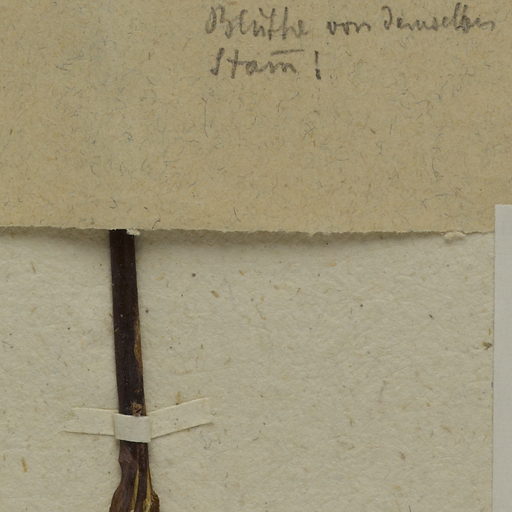 Blüthe von demselben
Stam̅!